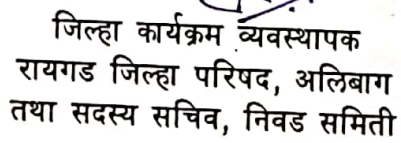 जिल्हा कार्यक्रम व्यवस्थापक
रायगड जिल्हा परिषद, अलिबाग
तथा सदस्य सचिव, निवड समिती